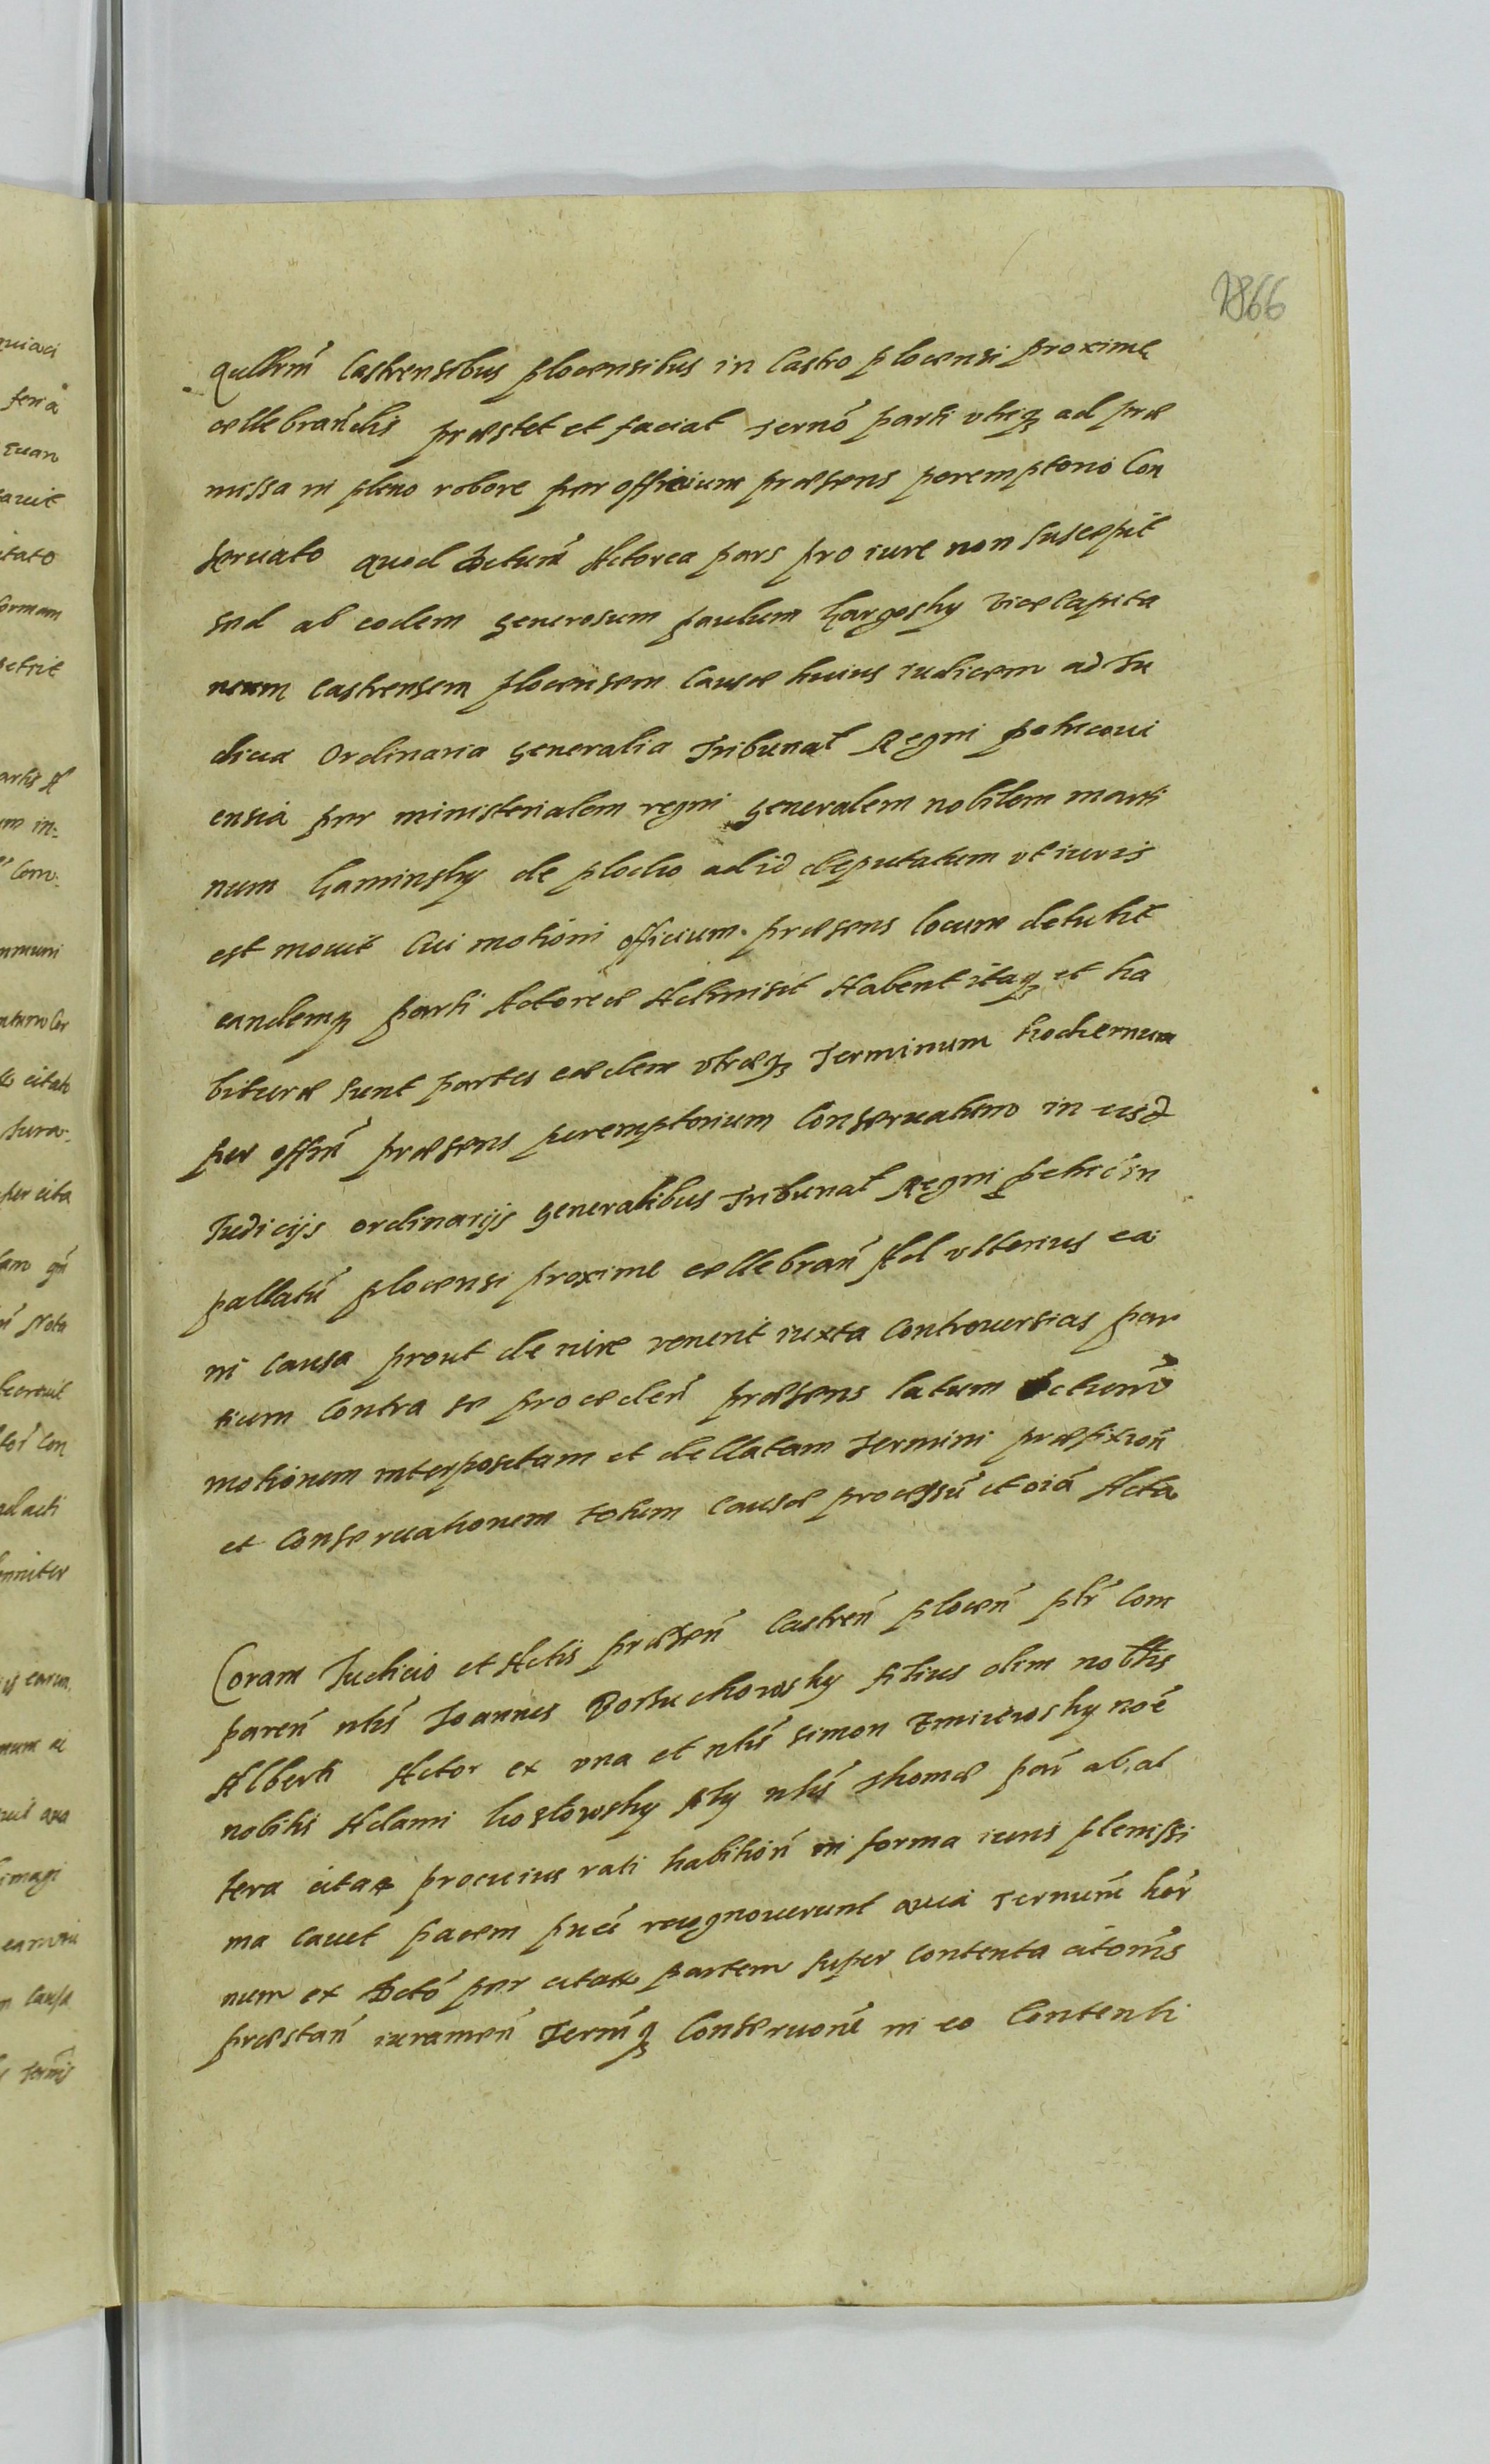 1866
Qullrim̃ Castrensibus plocensibus in Castro plocensi proxime
cellebrãdis præstet et faciat Termõ parti vtriqȝ ad præ
missa in pleno robore per officium præsens peremptorio Con
seruato quod Dectum̃ Actorea pars pro iure non suscepit
sed ab eodem generosum paulum hargoshy vice Capita
neum castrensem plocensem Causæ huius iudicem ad Iu
dicia Ordinaria generalia Tribunal Regni petricoui
ensia per ministerialem regni generalem nobilem marti
num haminshy de plocko ad id deputatum vt iuris
est mouit Cui motioni officium præsens locum detulit
eandemqȝ parti Actoreæ Admisit Habent itaqȝ et ha
bituræ sunt partes eædem vtræqȝ Terminum hodiernum
per offm̃ præsens peremptorium Conseruatum in eisd
Iudicijs ordinarijs generalibus Tribunal Regni petric̃ in
pallatũ plocensi proxime cellebrañ Ad vlterius ea
in causa prout de iure venerit iuxta Controuersias par
tium Contra se proceden̄ præsens latum Dectum̃
motionem interpositam et dellatam Termini præfixioñ
et Conseruationem totum Causæ processũ et oiã Acta
Coram Iudicio et Actis præseñ Castreñ ploceñ plr̃ Com
pareñ nlis̃ Joannes Borhuchowshy filius olim nobilis
Alberti Actor ex vna et nlis̃ simon Zmiiewshy noẽ
nobilis Adami kozlowshy Aly nlis̃ Thomæ par̃ ab al
tera citatæ pro cuius rati habitioñ in forma iuris plenissi
ma cauet pacem recognouerunt quia Terminũ hor̃
num ex Dectõ per citatã partem super contenta citõnis
præstañ iurameñ Term̃qȝ Conseruoñe in eo Contenti